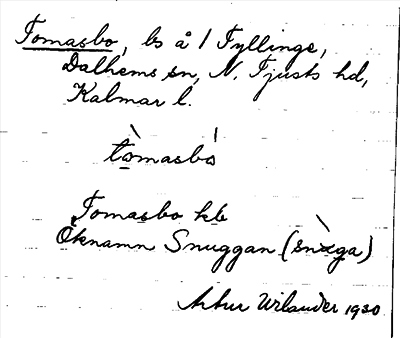 Tomasbo, ls å 1 Fyllinge,
Dalhems sn, N. Tjusts hd,
Kalmar l.
tòmasbó
Tomasbo klb
Öknamn Snuggan (snɤ̀ga)
Arthur Wilander 1930